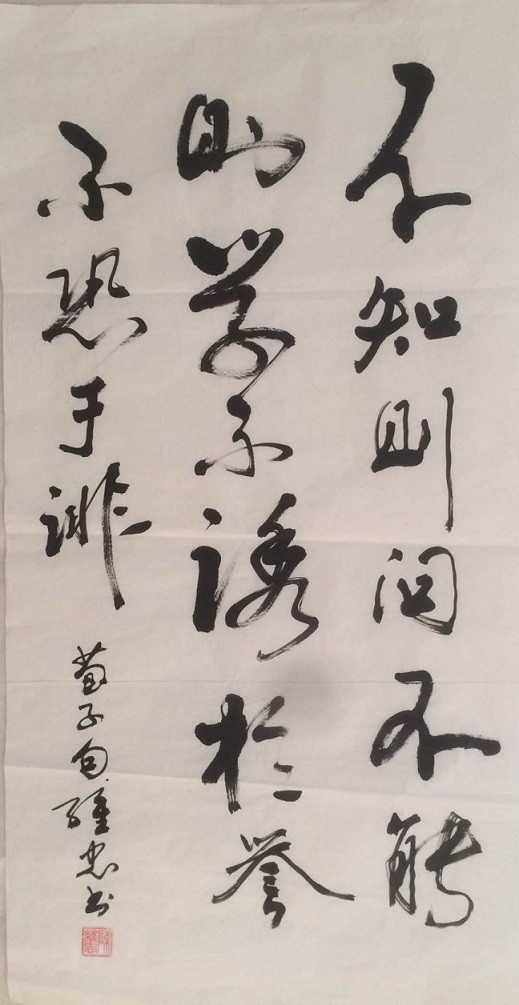 不知则问不能
则学不诱於誉
不恐于诽
荀子句 忠书